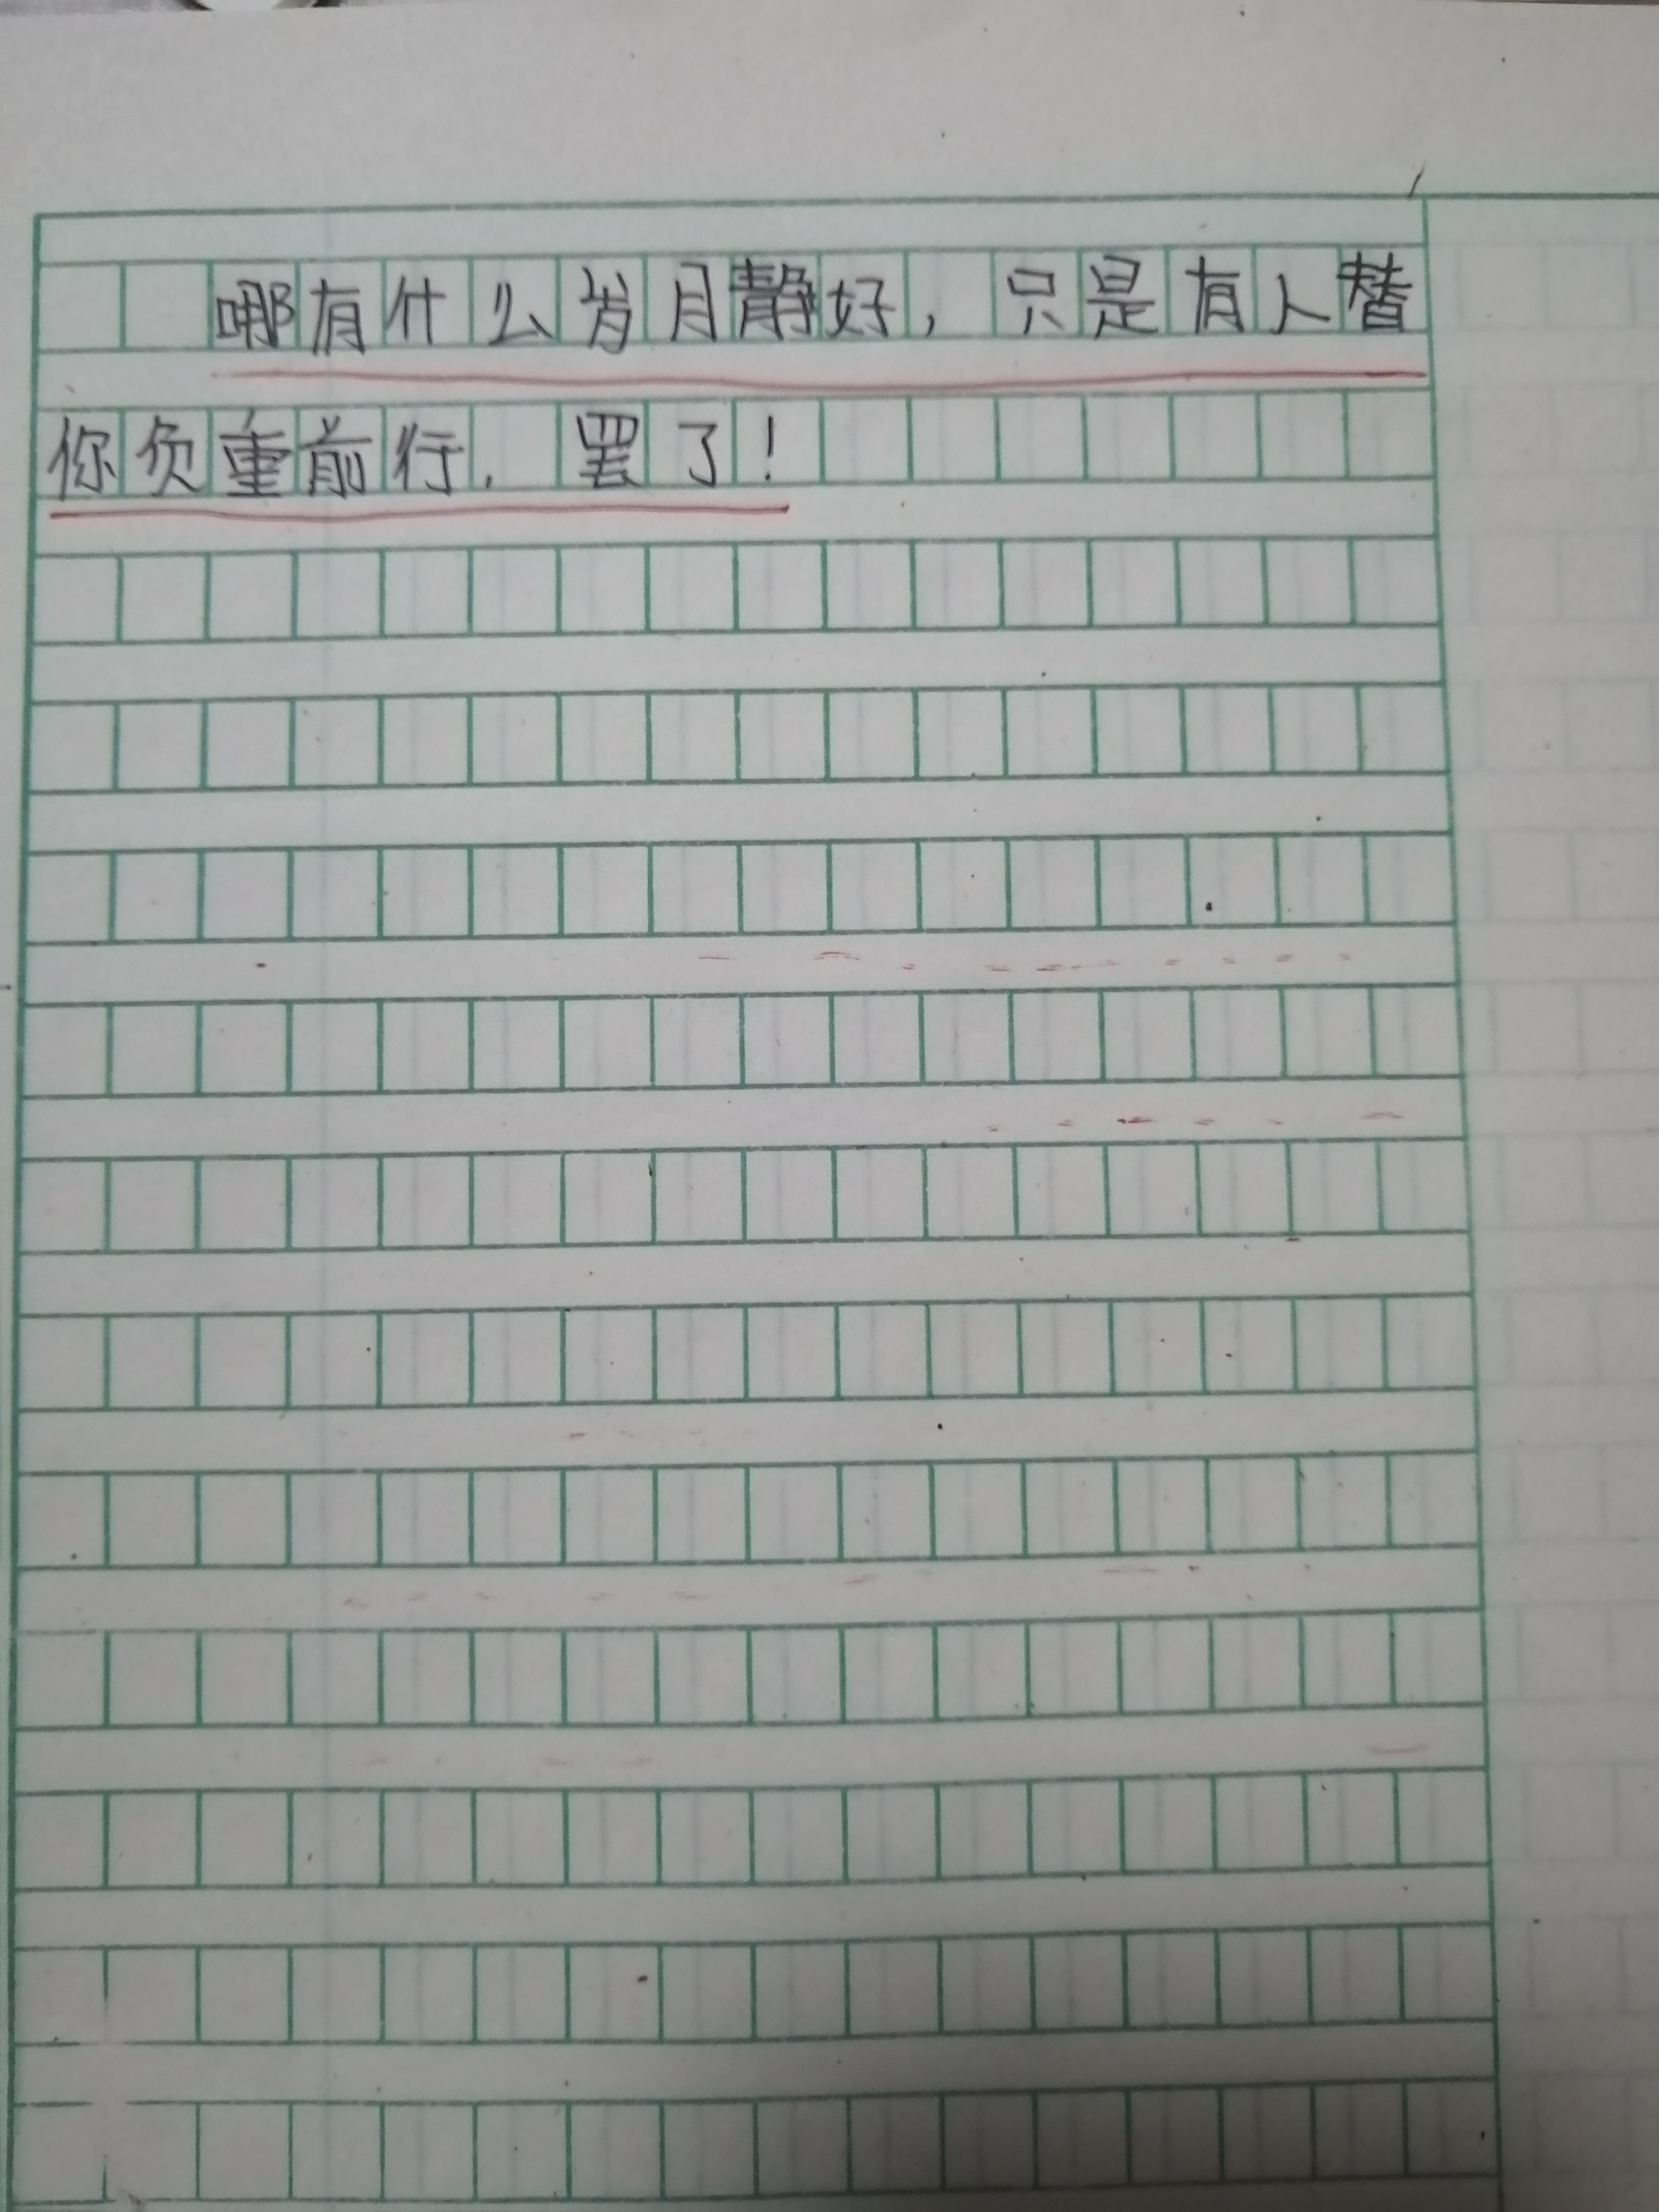 哪有什么岁月静好，只是有人替
你负重前行，罢了！